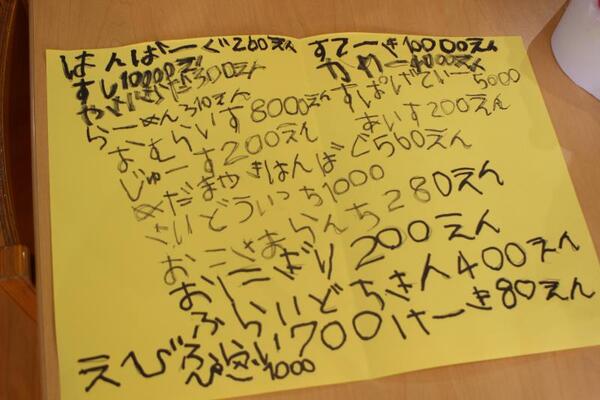 はんばーぐ260えん すてーき10000えん
すし10000えん かれー1000えん
やさいさらだ300えん
らーめん310えん すぱげてぃー5000
おむらいす8000えん あいす200えん
じゅーす200えん
めだまやきはんばぐ560えん
さいどういっち1000
おこさまらんち280えん
おにぎり200えん
ふらいどちきん400えん
えびふらい700けーき80えん
1000